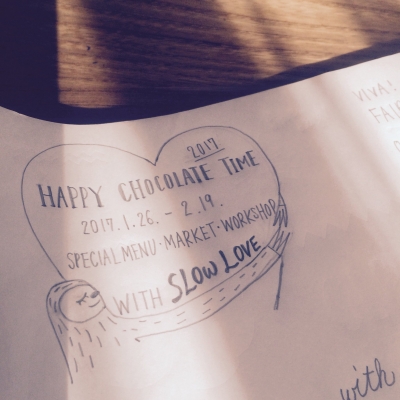 2017
HAPPY CHOCOLATE TIME
2017.1.26. - 2.19.
SPECIAL MENU · MARKET · WORKSHOP
WITH SLOW LOVE
VIVA!
with